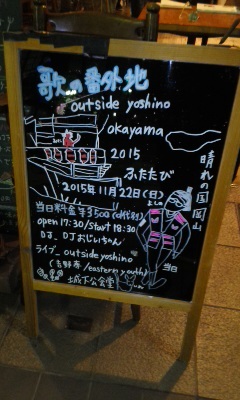 歌の番外地
outside yoshino
okayama
2015
ふたたび
晴れの国 岡山
2015年11月22日(日)
当日料金 ¥3500(D代別)
open 17:30/start 18:30
DJ、DJおじいちゃん
ライブ_outside yoshino
(吉野寿/eastern youth)
城下公会堂
よしの
当日